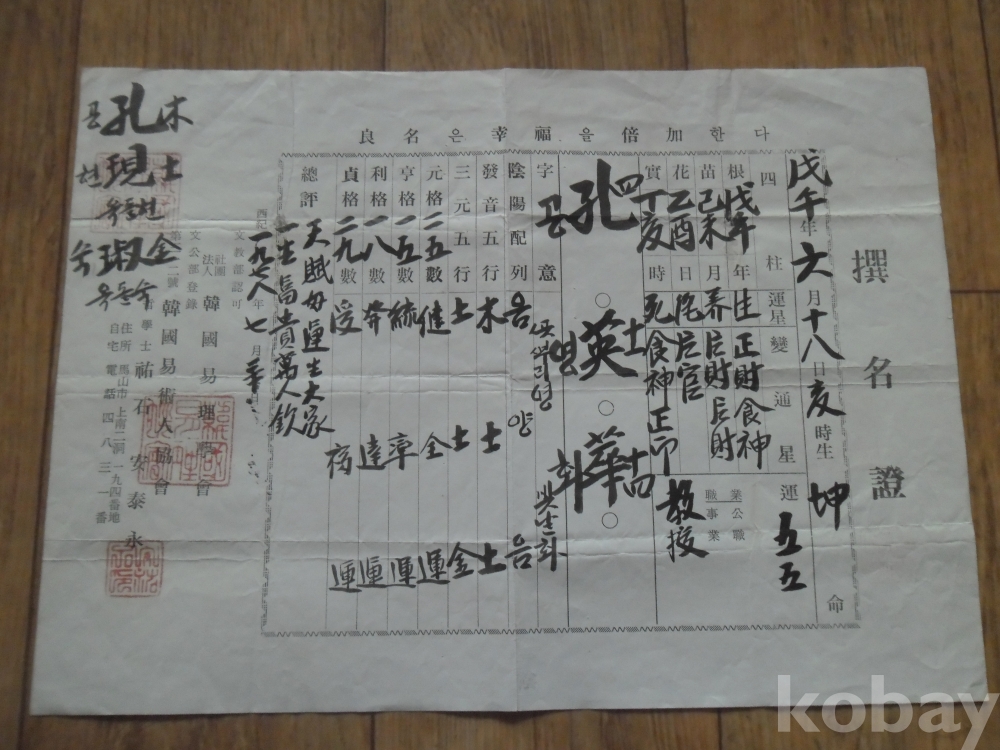 撰名證
良名은幸福을倍加한다
戊午年六月十八日亥時生 坤命
四柱 運星 變通星 運 五五
根 戊午年 生 正財食神
苗 己未月 养 偏財偏財
花 乙酉日 胞 偏官
實 丁亥時 死 食神正印
職業 公職事業
教授
孔英華
공 영 화
字意
꽃뿌리영
빛날화
陰陽配列 음 양 음
發音五行 木 土 土
三元五行 土 土 金
元格 二五數 健全運
亨格 一五數 統率運
利格 一八數 發達運
貞格 二九數 受福運
總評 天賦每運生大家
一生富貴萬人欽
西紀一九七八年七月
文教部認可
社團法人 韓國易理學會
文公部登錄
韓國易術人協會
哲學士 祐石 安泰永
住所 馬山市上南二洞一九四番地
自宅電話 四八三一番
공 孔 木
현 現 土
옥돌현
숙 淑 金
옥돌숙
kobay